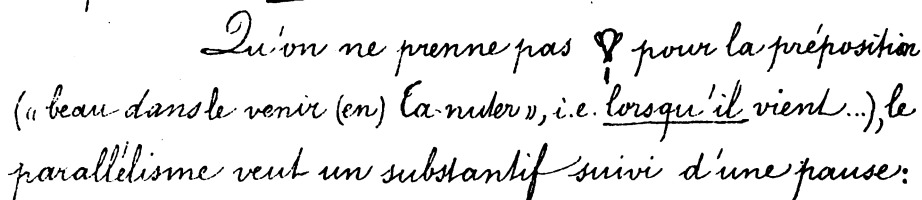 Qu'on ne prenne pas 𓄣 pour la préposition
(« beau dans le venir (en) Ta-nuter », i.e. lorsqu'il vient...), le
parallélisme veut un substantif suivi d'une pause: